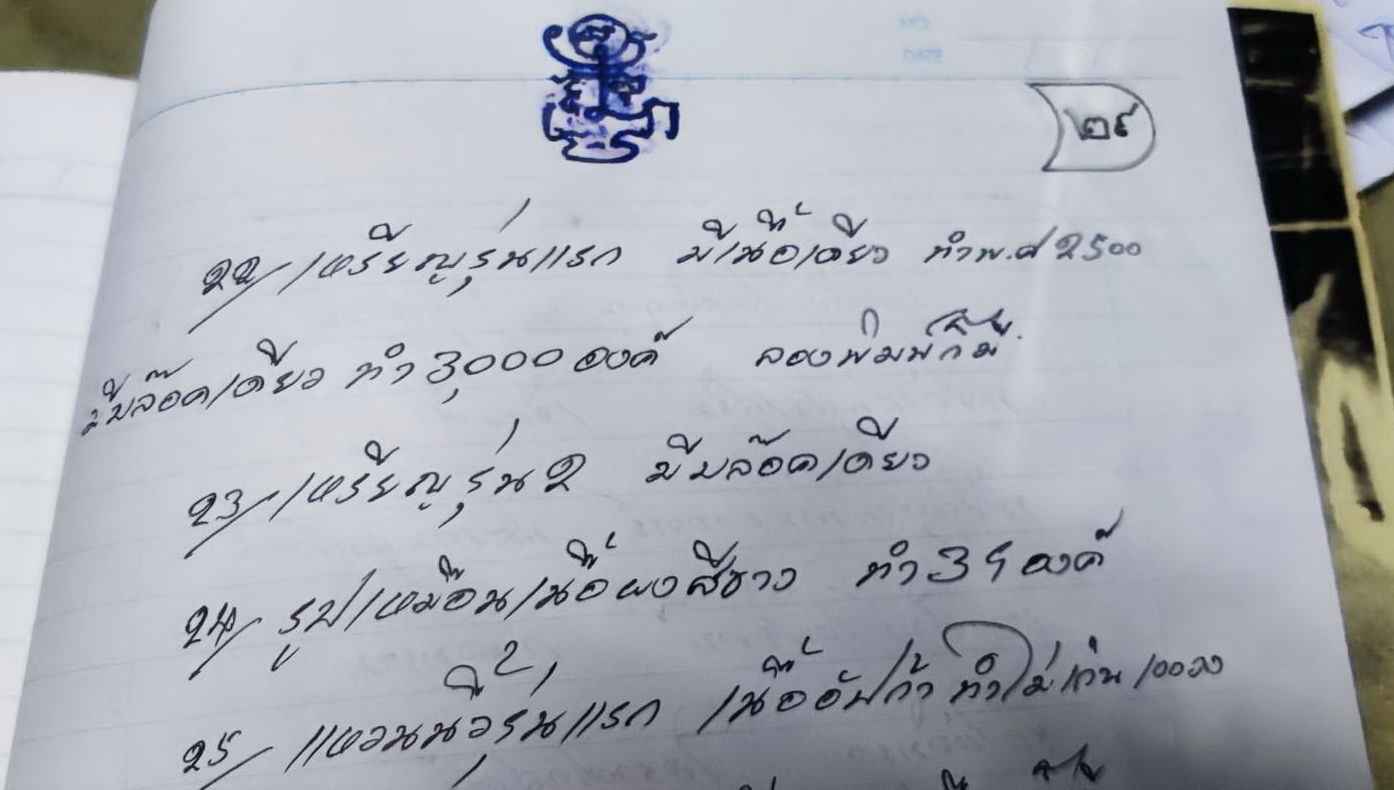 ๒๙
22/ เหรียญรุ่นแรก มีเนื้อเดียว ทำพ.ศ 2500
มีบล๊อคเดียว ทำ 3,000 องค์ ลองพิมพ์ก็มี
23/ เหรียญรุ่น 2 มีบล๊อคเดียว
24/ รูปเหมือนเนื้อผงสีขาว ทำ 39 องค์
25/ แหวนนิ้วรุ่นแรก เนื้ออัปก้า ทำไม่เกิน 100 วง